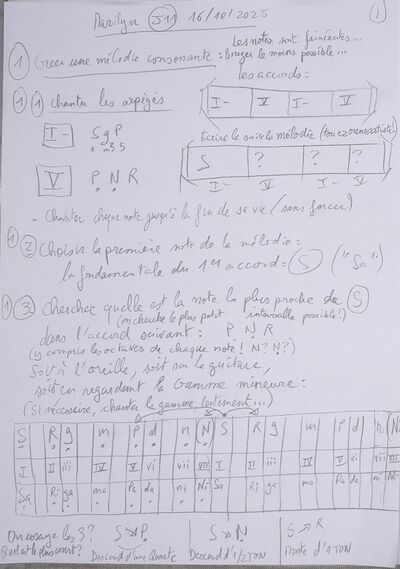 Marilyn S11 16/10/2025 1
Les notes sont fainéantes...
1 Créer une mélodie consonante : Bouger le moins possible...
Les accords =
1 1 Chanter les arpèges
I- V I- V
I- S g P
1 m3 5
Ecrire la suite la mélodie
S ? ? ?
V P N R
I- V I- V
- Chanter chaque note jusqu'à la fin de sa vie (sans forcer)
1 2 Choisir la première note de la mélodie =
la fondamentale du 1er accord = S ("Sa".)
1 3 Chercher quelle est la note la plus proche de S
(on cherche le plus petit intervalle possible!)
dans l'accord suivant : P N R
(y compris les octaves de chaque note! N? N?)
Soit à l'oreille, soit sur la guitare,
soit en regardant la Gamme mineure :
(Si nécessaire, chanter la gamme lentement...)
S R g m P d n N S R g m P d n N
I II iii IV V vi vii VII I II iii IV V vi vii VII
Sa Ri ga ma Pa da ni Ni Sa Ri ga ma Pa da ni Ni
On essaye les 3? S ↘ P S ↘ N S ↗ R
Quel est le plus court? Descend d'une Quarte Descend d'1/2 TON Monte d'1 TON